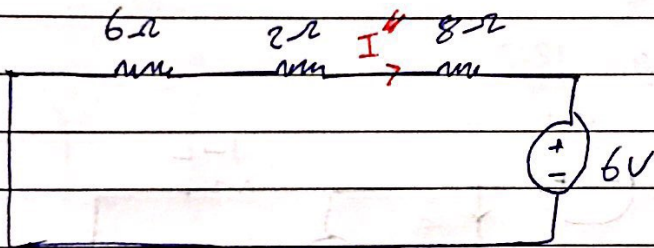 6Ω 2Ω I" 8Ω
+
- 6V